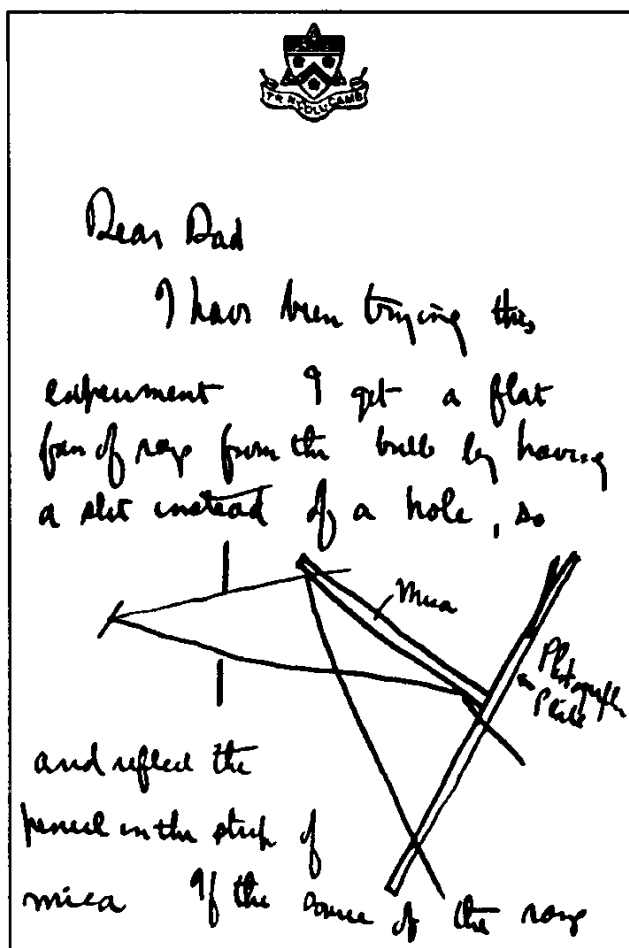 TRIN COLL CAMB
Dear Dad
I have been trying this
experiment I get a flat
fan of rays from the bulb by having
a slit instead of a hole, so
Mica
Photographic
Plate
and reflect the
pencil in the strip of
mica If the source of the rays